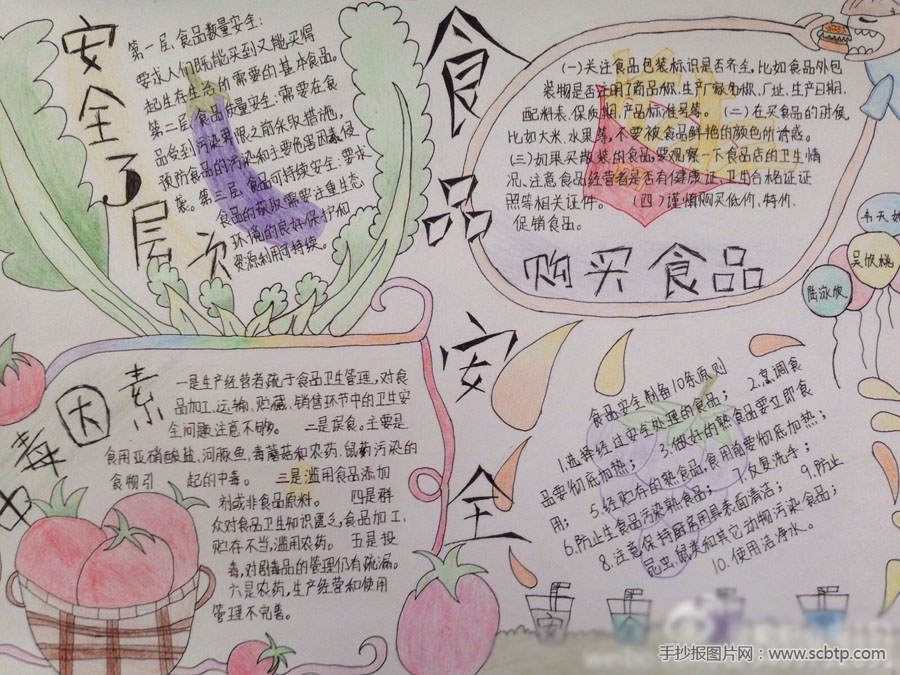 食品安全
安全3层次
第一层、食品数量安全:
要求人们既能买到又能买得
起生存生活所需要的基本食品。
第二层 食品质量安全:需要在食
品受到污染界限之前采取措施,
预防食品的污染和主要危害因素侵
袭。第三层 食品可持续安全:要求
食品的获取需要注重生态
环境的良好保护和
资源利用可持续。
(一)关注食品包装标识是否齐全,比如食品外包
装物是否注明了商品标、生产厂家名称、厂址、生产日期、
配料表、保质期、产品标准号等。(二)在买食品的时候,
比如大米、水果等,不要被食品鲜艳的颜色所诱惑。
(三)如果买散装的食品,要观察一下食品店的卫生情
况、注意食品经营者是否有健康证、卫生合格证证
照等相关证件。 (四)谨慎购买低价、特价、
促销食品。
购买食品
吴欣桃
陆泳欣
中毒因素
一是生产经营者疏于食品卫生管理,对食
品加工、运输、贮藏、销售环节中的卫生安
全问题注意不够。 二是误食。主要是
食用亚硝酸盐、河豚鱼、毒蘑菇和农药、鼠药污染的
食物引 起的中毒。 三是滥用食品添加
剂或非食品原料。 四是群
众对食品卫生知识匮乏,食品加工、
贮存不当,滥用农药。 五是投
毒,对剧毒品的管理仍有疏漏。
六是农药,生产经营和使用
管理不完善。
食品安全制备10条原则
1.选择经过安全处理的食品; 2.烹调食
品要彻底加热; 3.做好的熟食品要立即食
用; 5.经贮存的熟食品,食用前要彻底加热;
6.防止生食品污染熟食品; 7.反复洗手;
8.注意保持厨房用具表面清洁; 9.防止
昆虫、鼠类和其它动物污染食品;
10.使用洁净水。
手抄报图片网:www.scbtp.com